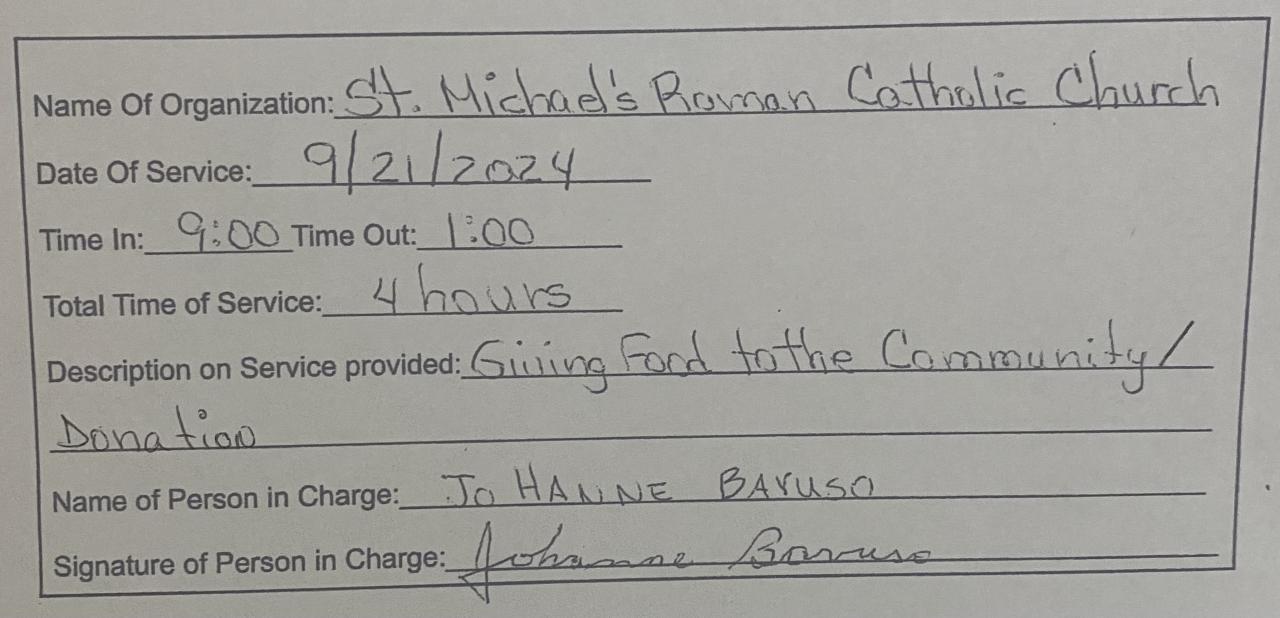 Name Of Organization: St. Michael's Roman Catholic Church
Date Of Service: 9/21/2024
Time In: 9:00 Time Out: 1:00
Total Time of Service: 4 hours
Description on Service provided: Giving Food to the Community/
Donation
Name of Person in Charge: JO HANNE BARUSO
Signature of Person in Charge: Johanne Baruso